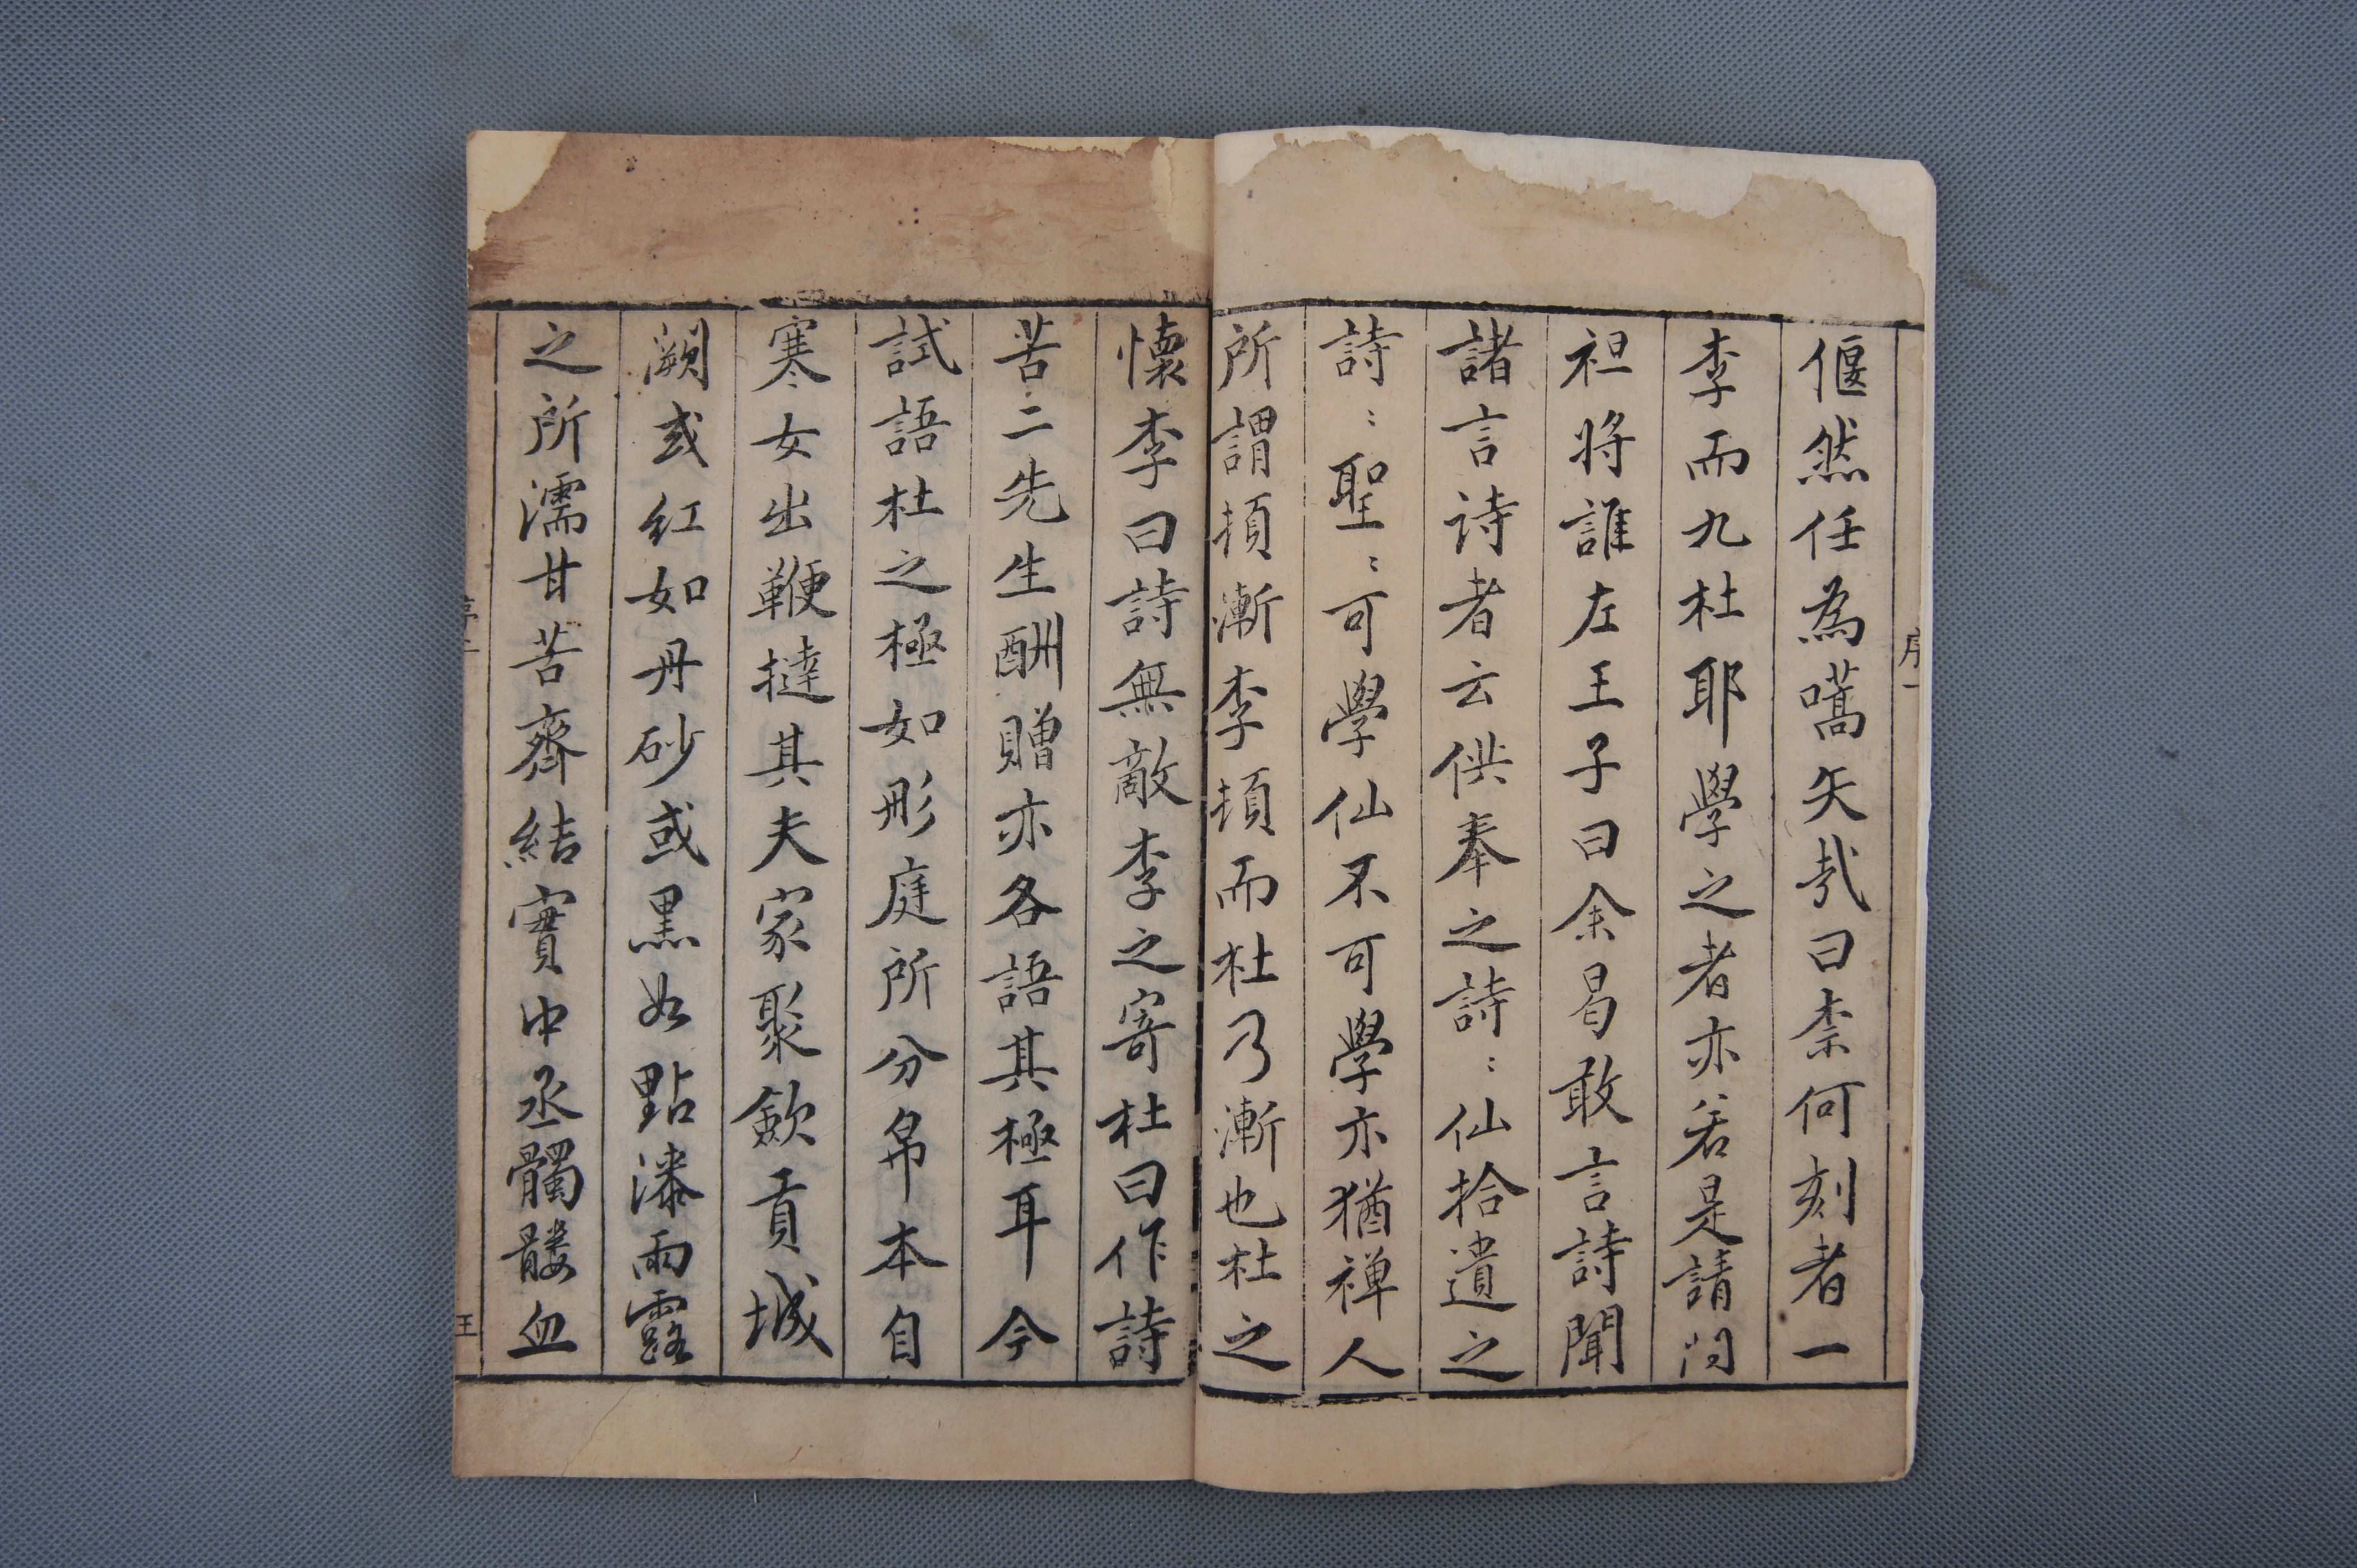 偃然任為嚆矢哉曰柰何刻者一
李而九杜耶學之者亦若是請問
袒將誰左王子曰余曷敢言詩聞
諸言诗者云供奉之詩：仙拾遺之
詩：聖：可學仙不可學亦猶禅人
所謂頓漸李頓而杜乃漸也杜之
懷李曰詩無敵李之寄杜曰作詩
苦二先生酬贈亦各語其極耳今
試語杜之極如彤庭所分帛本自
寒女出鞭撻其夫家聚歛貢城
闕或红如丹砂或黒如點漆雨露
之所濡甘苦齊結實中丞髑髏血
序一